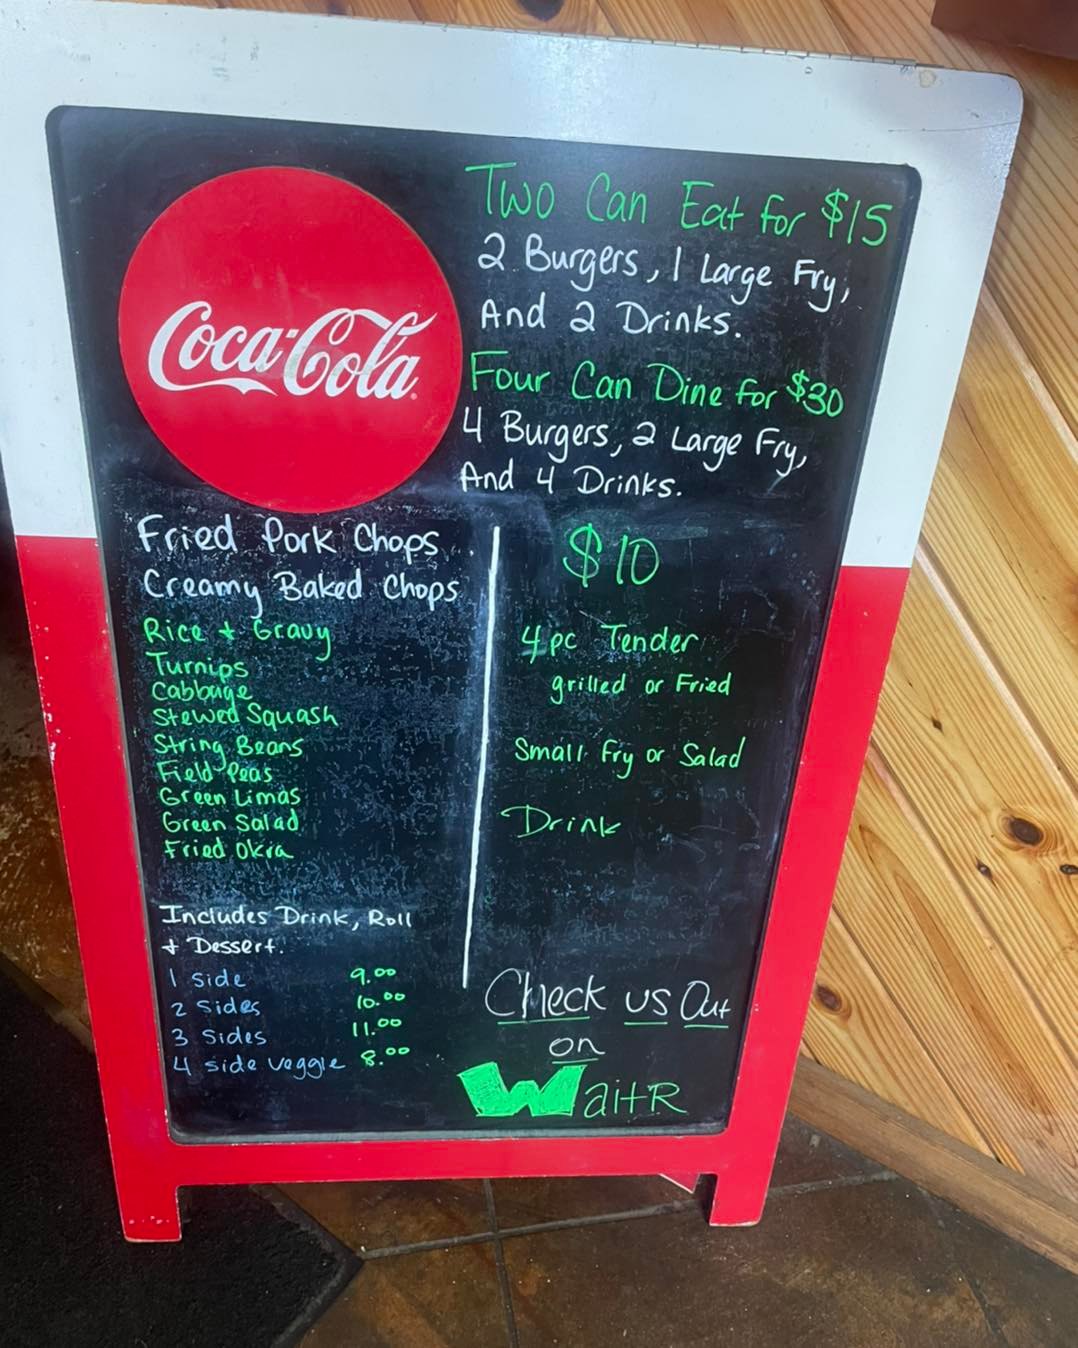 Coca-Cola
Two Can Eat for $15
2 Burgers, 1 Large Fry,
And 2 Drinks.
Four Can Dine for $30
4 Burgers, 2 Large Fry,
And 4 Drinks.
Fried Pork Chops
Creamy Baked Chops
Rice + Gravy
Turnips
Cabbage
Stewed Squash
String Beans
Field Peas
Green Limas
Green Salad
Fried Okra
Includes Drink, Roll
+ Dessert.
1 side 9.00
2 Sides 10.00
3 Sides 11.00
4 side veggie 8.00
$10
4 pc Tender
grilled or Fried
Small Fry or Salad
Drink
Check us Out
on
WaitR